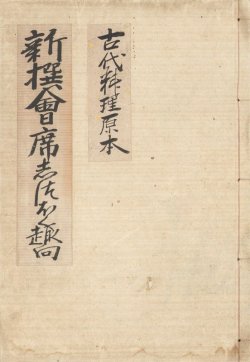 古代料理原本
新撰會席志趣向